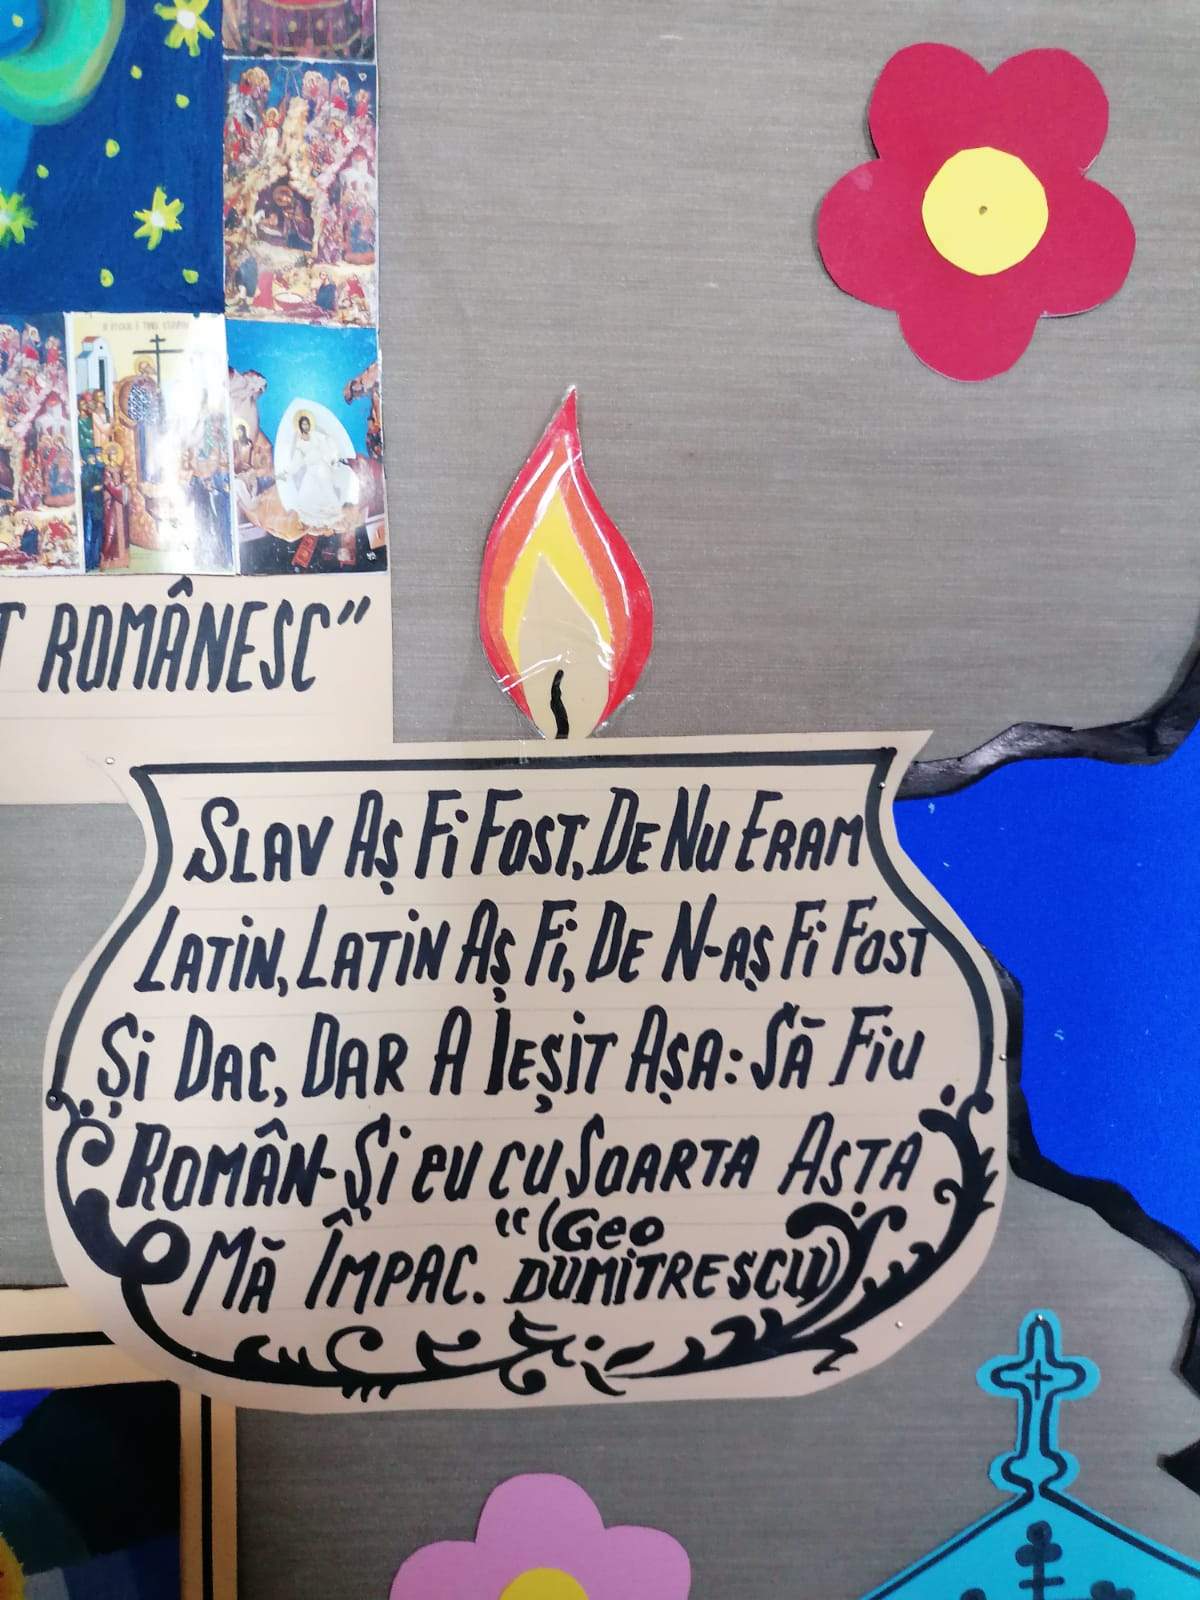 ROMÂNESC”
SLAV AȘ Fi FOST, DE NU ERAM
LATiN, LATiN AȘ Fi, DE N-AȘ Fi FOST
Și DAC, DAR A IEȘiT AȘA: SĂ FiU
ROMÂN- Și EU CU SOARTA ASTA
MĂ ÎMPAC. “(GeO
DUMiTRESCU)